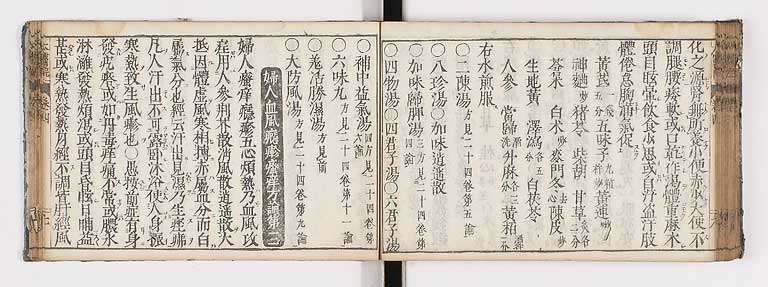 化之源腎錮所養小便赤水大便不
調腿腰痿軟或口乾作渴體重麻木
頭目眩暈飲食少思或自汗盜汗肢
體倦怠胸滿氣促
黃芪 五分 五味子 九粒 杵炒 黃連 炒
神麯 炒 豬苓 柴胡 甘草 炙各二分
蒼朮 白朮 炒 麥門冬 去心 陳皮
生地黃 澤瀉 各五分 白茯苓
人參 當歸 酒洗 升麻 各三分 黃栢 酒拌炒
右水煎服
〇二陳湯 方見二十四卷第五論
〇八珍湯〇加味逍遙散
〇加味歸脾湯 三方見二十四卷第四論
〇四物湯〇四君子湯〇六君子湯
〇補中益氣湯 四方見二十四卷第六論
〇六味丸 方見二十四卷第十一論
〇羌活勝濕湯 方見前
〇大防風湯 方見二十四卷第九論
婦人血風癮疹瘙癢方論第三
婦人瘙癢癮疹五心煩熱乃血風攻
疰用人參荊芥散消風散逍遙散大
抵因體虛風寒相搏赤屬血分而白
屬氣分也經云汗出見濕乃生痤疿
凡人汗出不可露臥沐浴使人身振
寒熱致生風疹也〇愚按前症有身
發疙瘩或如丹毒痒痛不常或膿水
淋漓發熱煩渴或頭目昏眩日晡益
甚或寒熱發熱月經不調皆肝經風